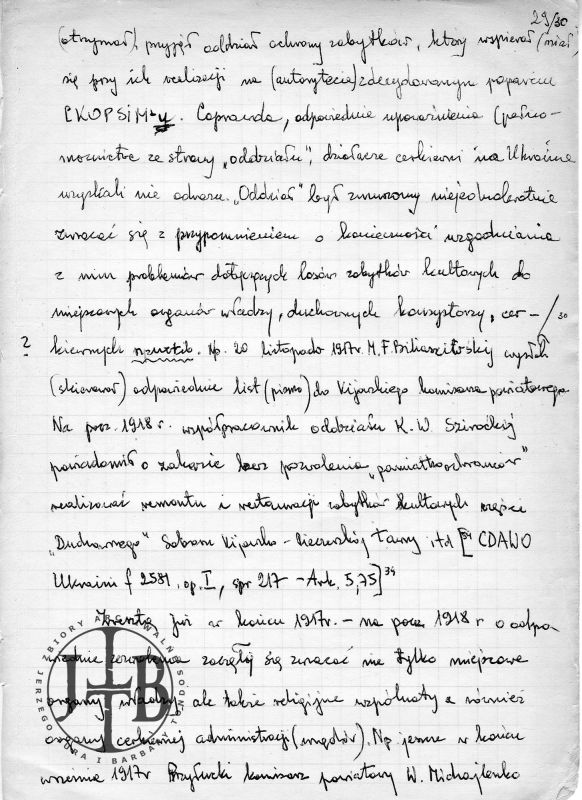 29/30
(otrzymał) przyjął oddział ochrony zabytków, który wspierał (miał)
się przy ich realizacji na (autorytecie) zdecydowanym poparciu
[KOPSiM-u. Coprawda, odpowiednie upoważnienia (pełno-
mocnictwa ze strony „oddziału”, działacze cerkiewni na Ukrainie
uzyskali nie odrazu. „Oddział” był zmuszony niejednokrotnie
zwracać się z przypomnieniem o konieczności uzgadniania
z nim problemów dotyczących losów zabytków kultowych do
miejscowych organów władzy, duchownych konsystorzy, cer-/30
? kiewnych. Np. 20 listopada 1917r. M.F. Biliaszіwśkij wysłał
(skierował) odpowiednie list (pismo) do Kijowskiego komisarza powiatowego.
Na pocz. 1918 r. współpracownik oddziału K.W. Szirockij
powiadomił o zakazie bez pozwolenia „pamiatkoochrońców”
realizować remontu i restauracji zabytków kultowych
„Duchownego” Soboru Kijowsko-Pieczerskiej Ławry itd [34 CDAWO
Ukraini f 2581, op. I, spr 217 - Ark. 5,75]34
Zresztą już w końcu 1917r. – na pocz. 1918 r o odpo-
wiednie zezwolenia zaczęły się zwracać nie tylko miejscowe
organy władzy, ale także religijne wspólnoty a również
organy cerkiewnej administracji (urzędów). Np jeszcze w końcu
września 1917r Pryłucki komisarz powiatowy W. Michajlenko
ZBIORY ARCHIWALNE
JERZEGO
I BARBARY
JTB